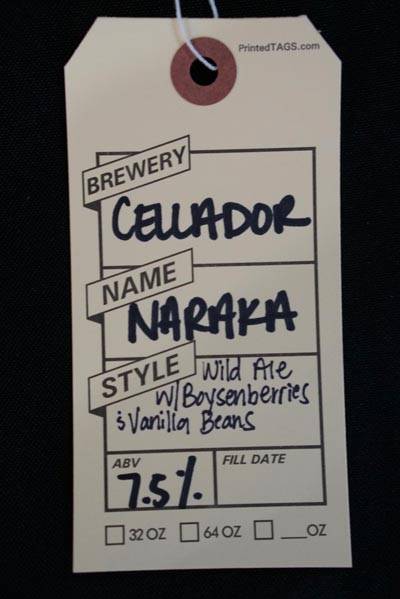 PrintedTAGS.com
BREWERY
CELLADOR
NAME
NARAKA
STYLE
Wild Ale
W/ Boysenberries
& Vanilla Beans
ABV
FILL DATE
7.5%
32 OZ 64 OZ ___OZ